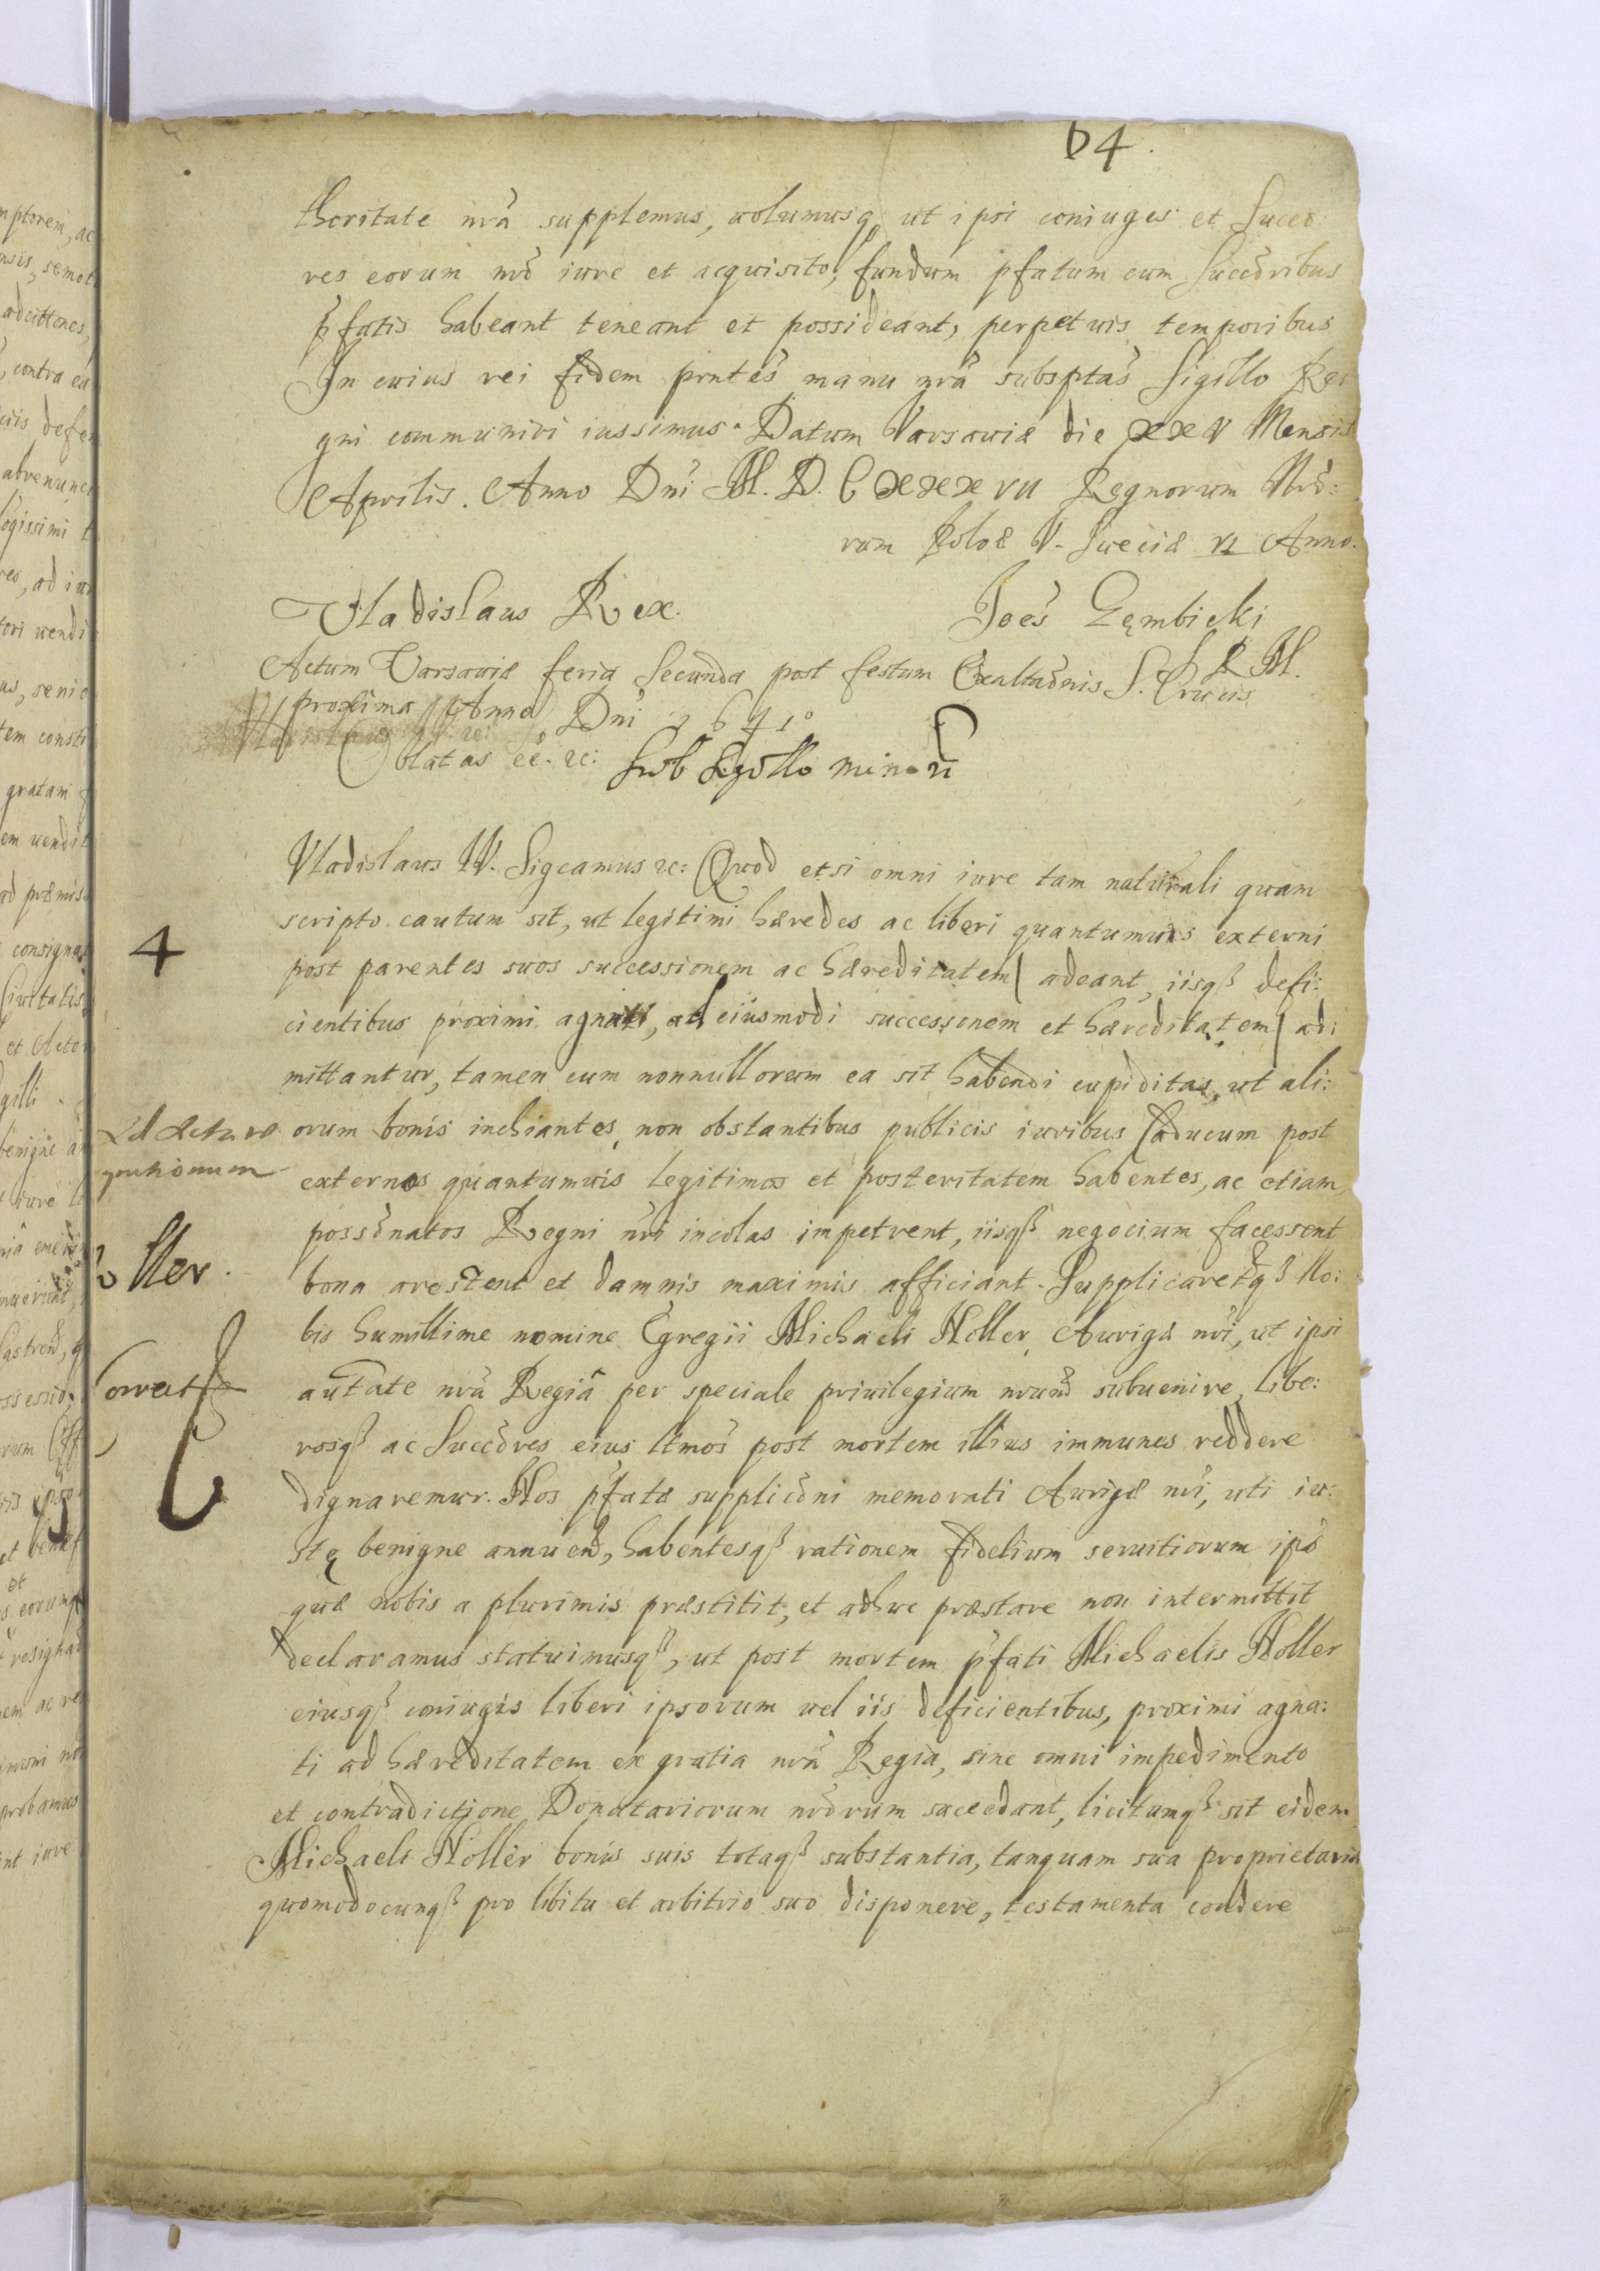 64.
thoritate nrã supplemus, uolumusq, ut ipsi coniuges et Succo
res eorum nrõ iure et acquisito, fundum pfatum cum Succõribus
pfatis habeant teneant et possideant, perpetuis temporibus
In cuius rei fidem pñtes manu nrã subsptas Sigillo Re
gni communiri iussimus. Datum Varsauiæ die XXV Mensis
Aprilis. Anno Dni M.D.CXXXVII Regnorum Nrõ:
rum Polo͞æ V. Sueciæ VI Anno.
Vladislaus Rex.
Joẽs Gębicki
S R M.
Actum Varsauiæ feria Secunda post festum Exaltaõnis S. Crucis
proxima Anno Dni 1641º
Oblatas &c. &c: Sub Sigillo minori
Vladislaus IV. Sigcamus &c: Quod etsi omni iure tam naturali quam
scripto cautum sit, ut legitimi hæredes ac liberi quantumuis externi
post parentes suos successionem ac hæreditatem adeant, iisq defi:
cientibus proximi agnati, ad eiusmodi successionem et hæreditatem ad:
mittantur, tamen cum nonnullorum ea sit habendi cupiditas, ut ali:
orum bonis inchiantes, non obstantibus publicis iuribus Caducum post
externos quantumuis legitimos et posteritatem habentes, ac etiam
possõnatos Regni nri incolas impetrent, iisq negocium facessent
bona arestent et damnis maximis afficiant. Supplicaretq No:
bis humillime nomine Egregii Michaeli Holler Aurigæ nri, ut ipsi
autate nrã Regiâ per speciale priuilegium subuenire, libe:
rosq ac Succõres eius ltmos post mortem illius immunes reddere
dignaremur. Nos pfatæ supplicõni memorati Aurigæ nri, uti iu:
stę benigne annuend, habentesq rationem fidelium seruitiorum ips
quæ nobis a plurimis præstitit, et adhuc præstare non intermittit
declaramus statuimusq, ut post mortem pfati Michaelis Holler
eiusq coniugis liberi ipsorum uel iis deficientibus, proximi agna:
ti ad hæreditatem ex gratia nrã Regia, sine omni impedimento
et contradictione Donatariorum nrõrum succedant, licitumq sit eidem
Michaeli Holler bonis suis totaq substantia, tanquam sua proprietaria
quomodocunq pro libitu et arbitrio suo disponere, testamenta condere
4
Holler.